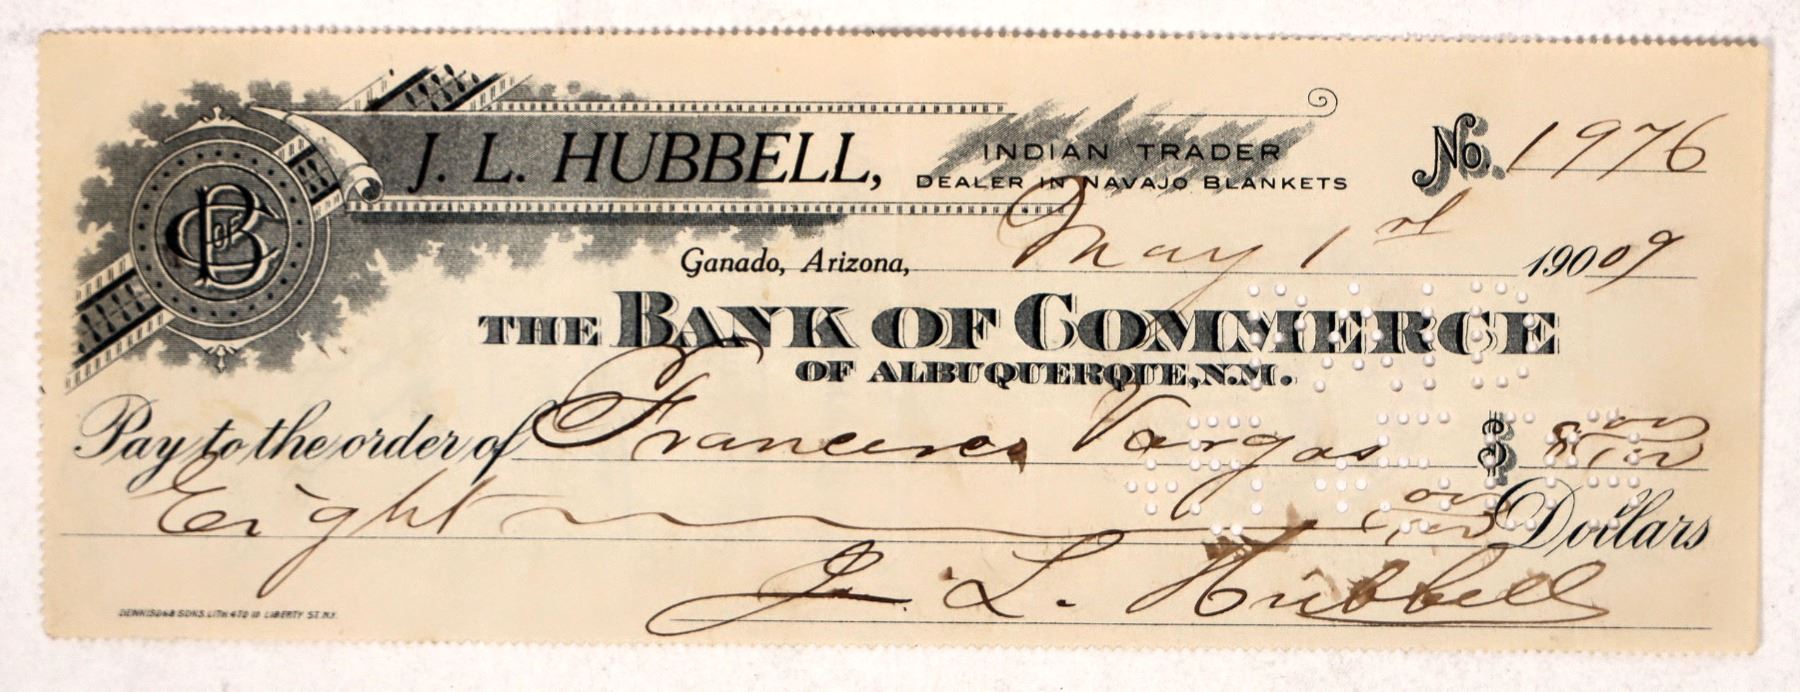 J. L. HUBBELL, INDIAN TRADER No. 1976
DEALER IN NAVAJO BLANKETS
Ganado, Arizona, May 1st 190009
B OF C
THE BANK OF COMMERCE
OF ALBUQUERQUE, N.M.
Pay to the order of Francisco Vargas $ 8 00/100
Eight 00/100 Dollars
J. L. Hubbell
DENNISON & SONS. LITH. & TO 10 LIBERTY ST. N.Y.